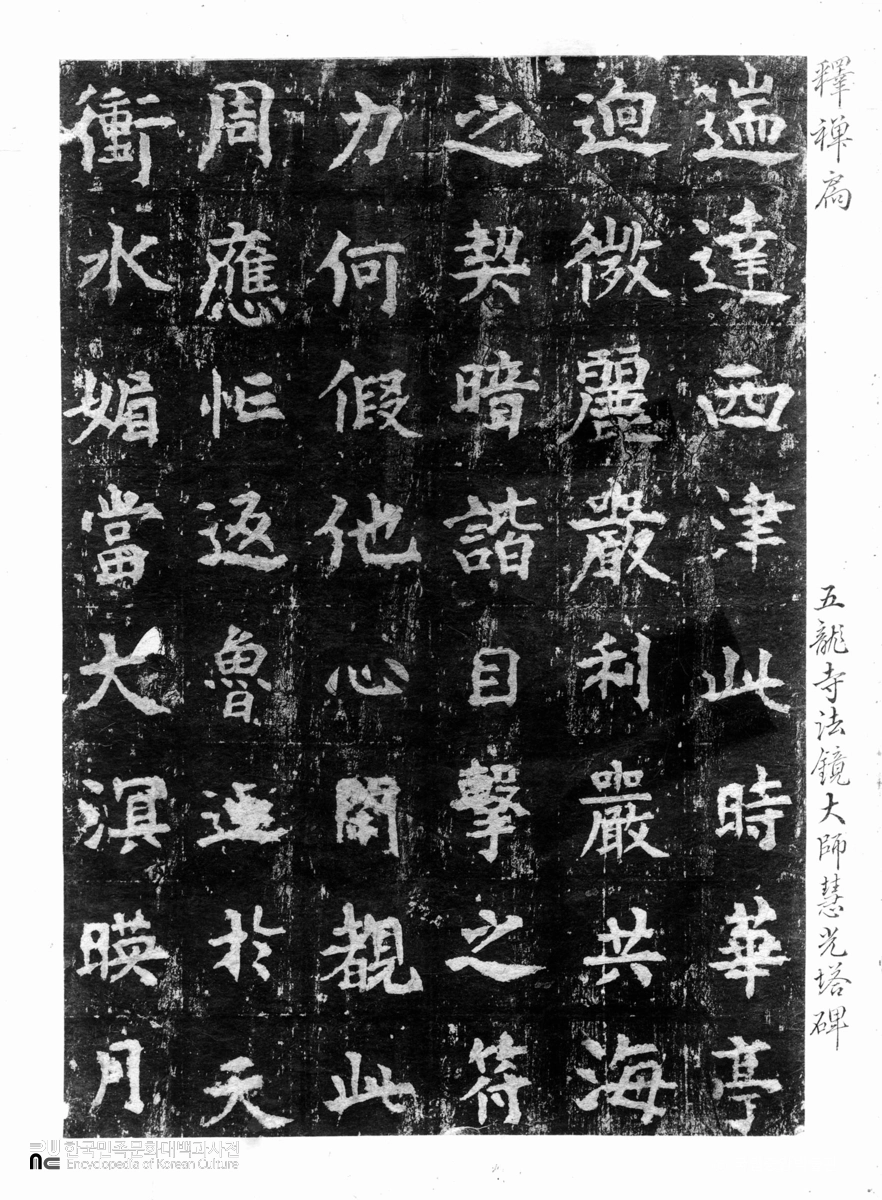 釋禪扃
五龍寺法鏡大師慧光塔碑
遄達西津此時華亭
逈微麗嚴利嚴共海
之契暗諧目擊之符
力何假他心閑覩此
周應忙返魯遽於天
衝水媚當大溟暎月
한국민족문화대백과사전
Encyclopedia of Korean Culture